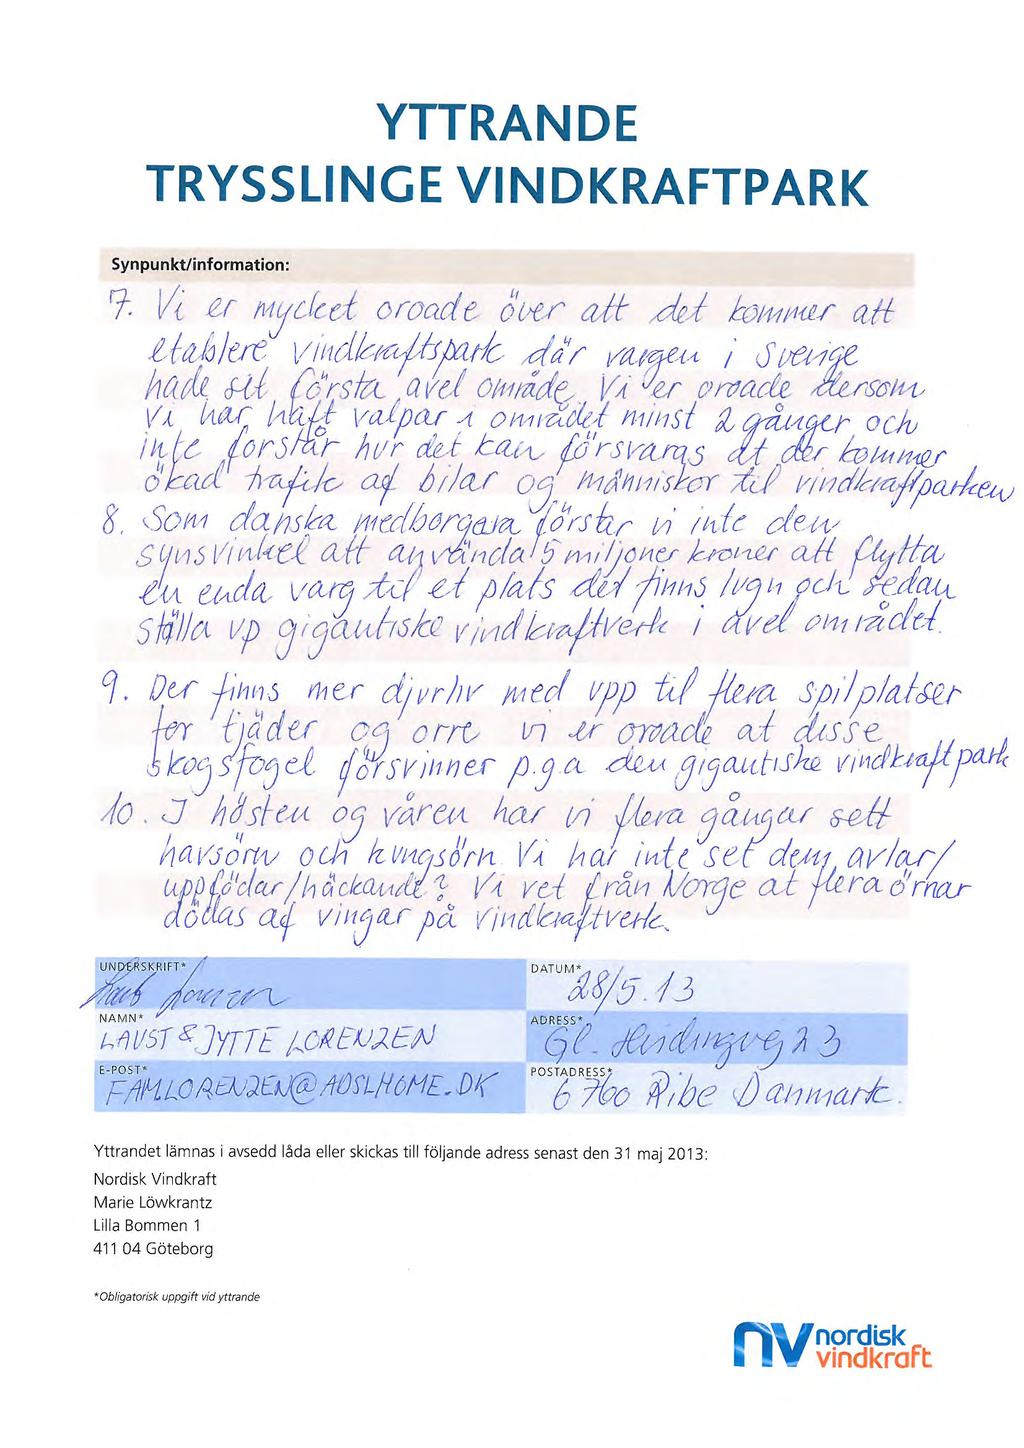 YTTRANDE
TRYSSLINGE VINDKRAFTPARK
Synpunkt/information:
7. Vi er mycket oroade över att det kommer att
etablere vindkraftspark där vargen i Sverige
hade sit första avel område. Vi er oroade dersom
vi har haft valpar i området minst 2 gånger och
inte forstår hur det kan försvaras at der kommer
ökad trafik af bilar og människor til vindkraftparken
8. Som danska medborgera förstår vi inte den
synsvinkel att använda 15 miljoner kroner att flytta
en enda varg til et plats det finns lugn och sedan
ställa up gigantiske vindkraftverk i avel området.
9. Der finns mer djurliv med upp til flera spilplatser
for tjäder og orre vi er oroade at disse
skogsfogel försvinner p.g.a den gigantishe vindkraftpark
10. I hösten og våren har vi flera gångar sett
havsörn och kungsörn. Vi har inte set dem avlar/
uppfödar/häckande? Vi vet från Norge at flera örnar
dödas af vingar på vindkraftverk.
UNDERSKRIFT*
DATUM*
28/5.13
NAMN*
LAUST & JYTTE LORENZEN
ADRESS*
Gl. 23
E-POST*
FAM.LORENZEN@ADSLHOME.DK
POSTADRESS*
6760 Ribe Danmark.
Yttrandet lämnas i avsedd låda eller skickas till följande adress senast den 31 maj 2013:
Nordisk Vindkraft
Marie Löwkrantz
Lilla Bommen 1
411 04 Göteborg
*Obligatorisk uppgift vid yttrande
nv nordisk
vindkraft